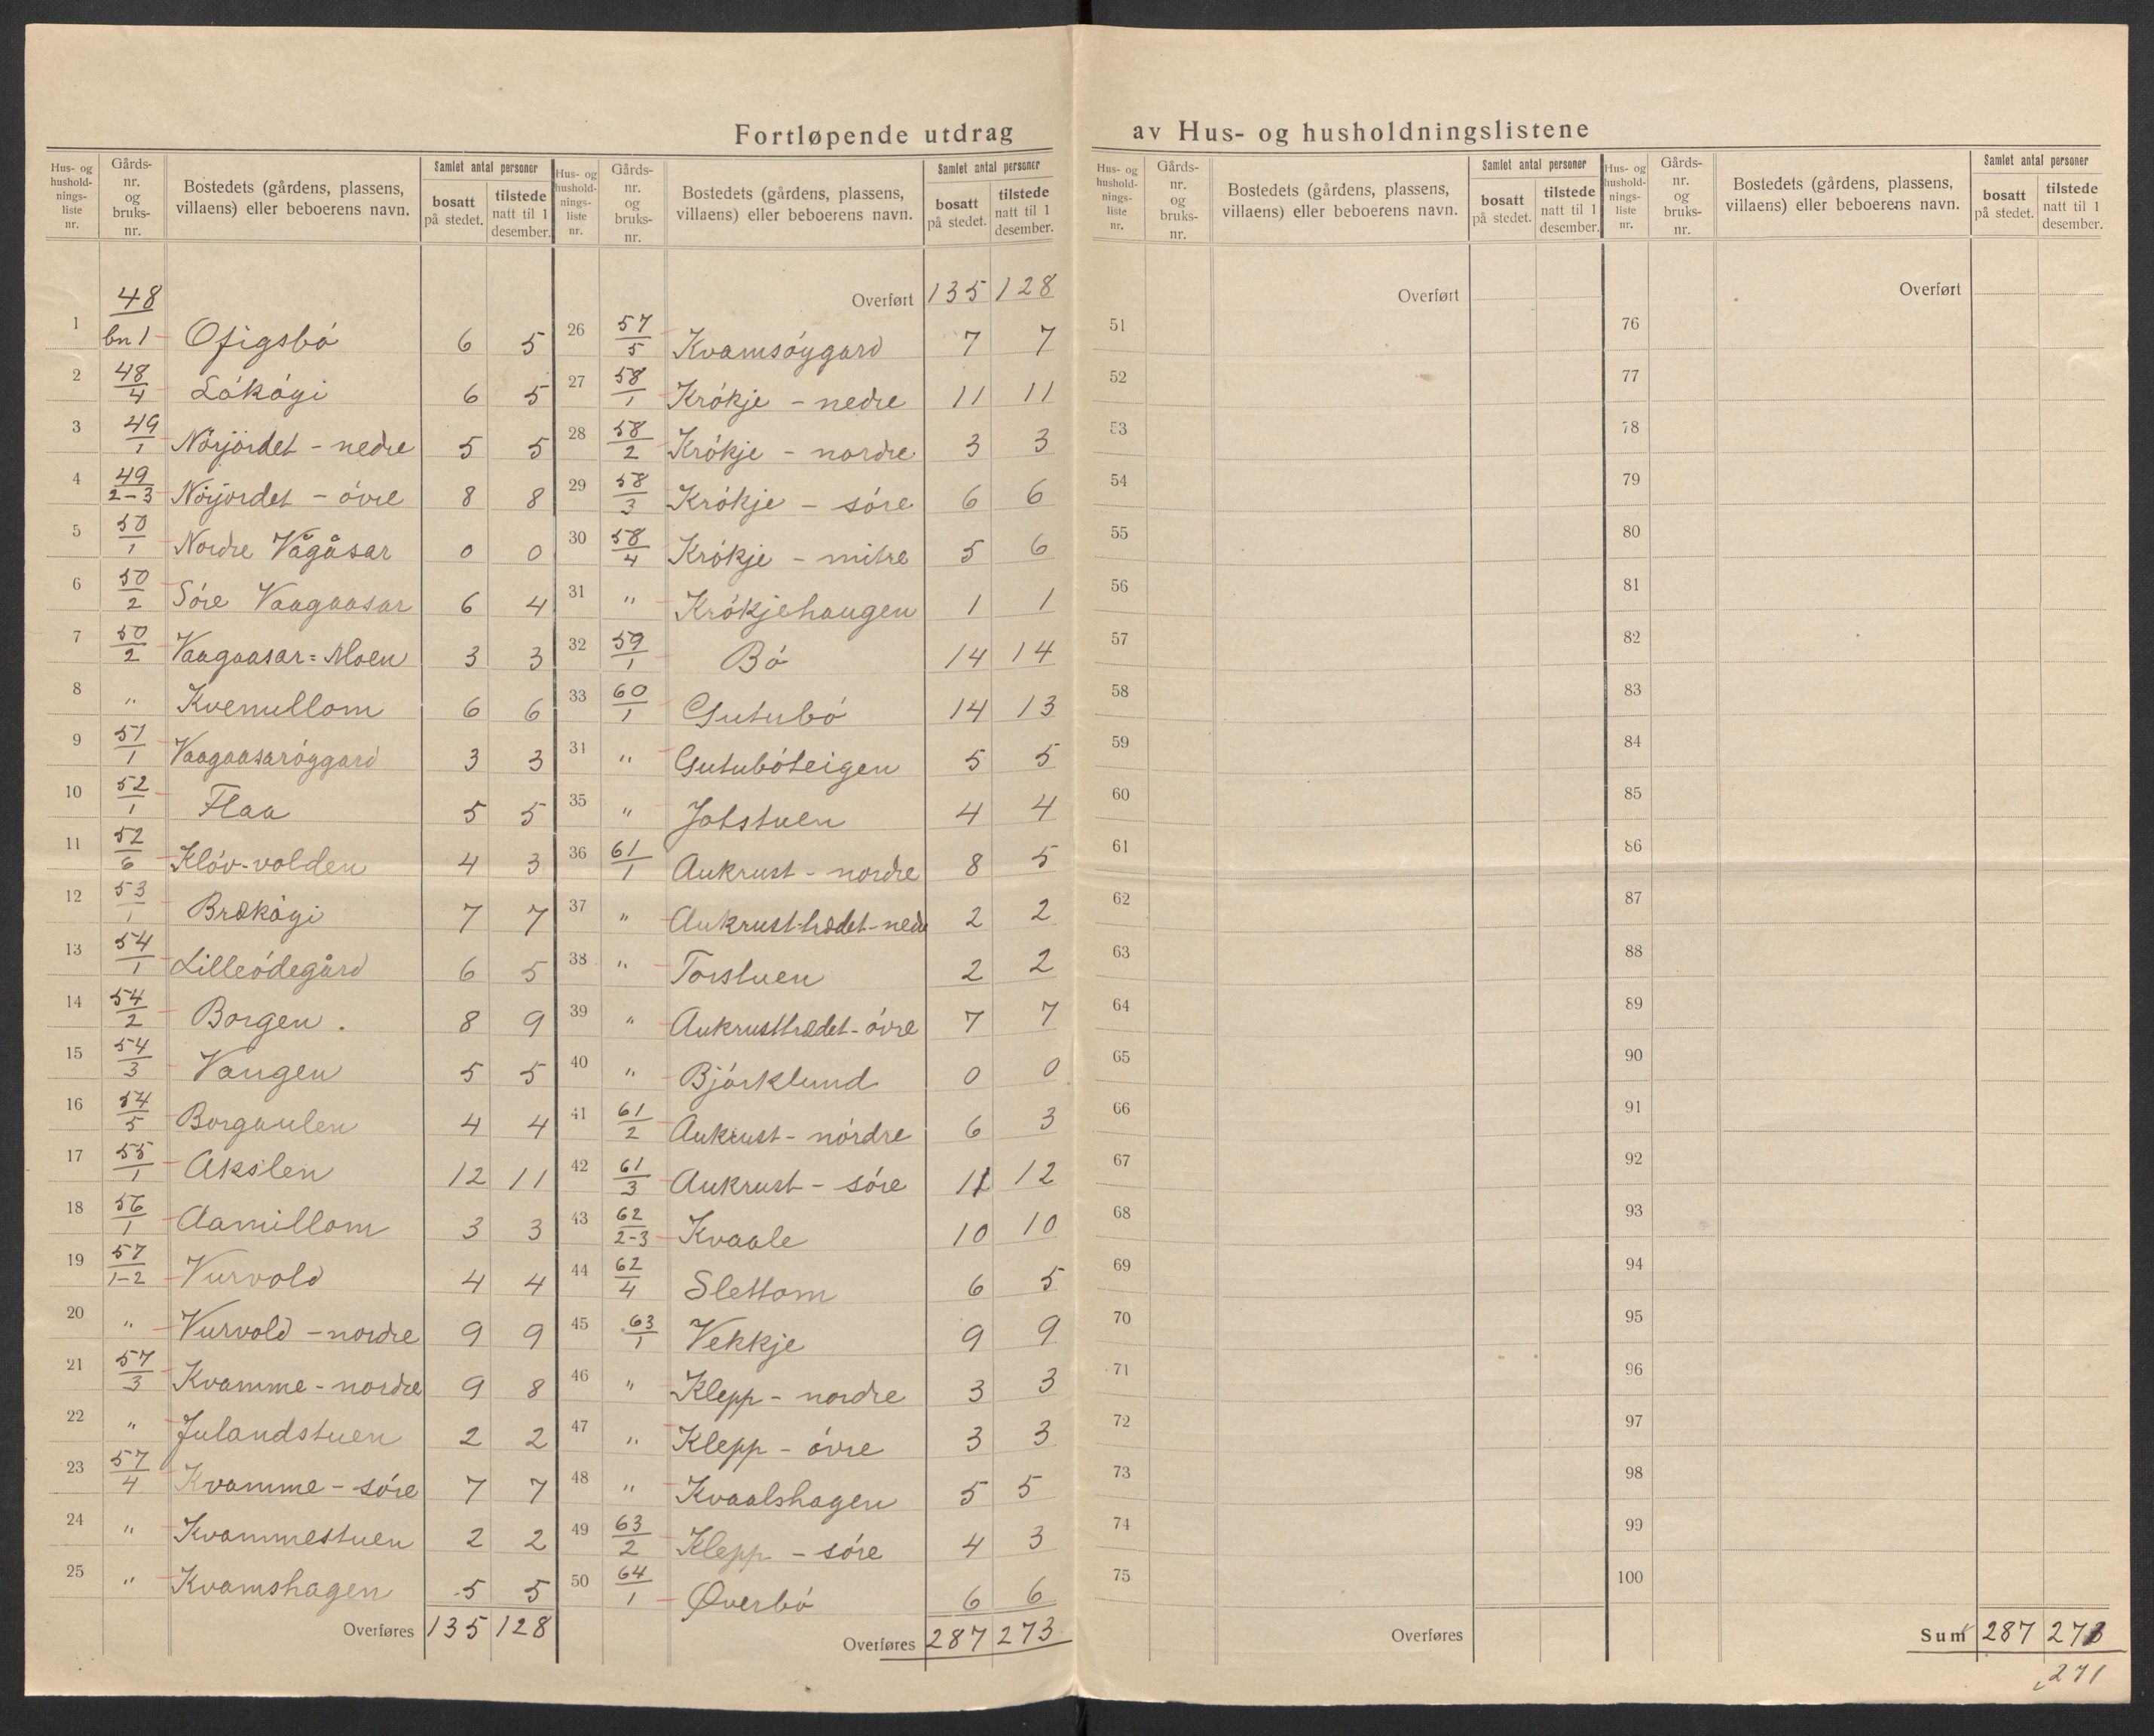 Fortløpende utdrag av Hus- og husholdningslistene
Hus- og hushold-nings-liste nr. | Gårds-nr. og bruks-nr. | Bostedets (gårdens, plassens, villaens) eller beboerens navn. | Samlet antal personer | bosatt på stedet. | tilstede natt til 1 desember.
1 48 bn 1 Ofigsbó 6 5
2 48/4 Lókógi 6 5
3 49/1 Nórjordet - nedre 5 5
4 49/2-3 Nórjordet - óvre 8 8
5 50/1 Nordre Vågåsar 0 0
6 50/2 Sóre Vaagaasar 6 4
7 50/2 Vaagaasar=Moen 3 3
8 " Kvenullom 6 6
9 51/1 Vaagaasaróggard 3 3
10 52/1 Flaa 5 5
11 52/6 Klóv-volden 4 3
12 53/1 Brækógi 7 7
13 54/1 Lilleódegård 6 5
14 54/2 Borgen . 8 9
15 54/3 Vangen 5 5
16 54/5 Borgaulen 4 4
17 55/1 Akslen 12 11
18 56/1 Aamillom 3 3
19 57/1-2 Vurvold 4 4
20 " Vurvold - nordre 9 9
21 57/3 Kvamme - nordre 9 8
22 " Julandstuen 2 2
23 57/4 Kvamme - sóre 7 7
24 " Kvammestuen 2 2
25 " Kvamshagen 5 5
Overføres 135 128
Hus- og hushold-nings-liste nr. | Gårds-nr. og bruks-nr. | Bostedets (gårdens, plassens, villaens) eller beboerens navn. | Samlet antal personer | bosatt på stedet. | tilstede natt til 1 desember.
Overført 135 128
26 57/5 Kvamsóygard 7 7
27 58/1 Krókje - nedre 11 11
28 58/2 Krókje - nordre 3 3
29 58/3 Krókje - sóre 6 6
30 58/4 Krókje - mitre 5 6
31 " Krókjehaugen 1 1
32 59/1 Bó 14 14
33 60/1 Gutubó 14 13
34 " Gutubóteigen 5 5
35 " Jotstuen 4 4
36 61/1 Aukrust - nordre 8 5
37 " Aukrust-trædet-nedre 2 2
38 " Torstuen 2 2
39 " Aukrusttrædet-óvre 7 7
40 " Bjórklund 0 0
41 61/2 Aukrust - nórdre 6 3
42 61/3 Aukrust - sóre 11 12
43 62/2-3 Kvaale 10 10
44 62/4 Slettom 6 5
45 63/1 Vekkje 9 9
46 " Klepp - nordre 3 3
47 " Klepp - óvre 3 3
48 " Kvaalshagen 5 5
49 63/2 Klepp - sóre 4 3
50 64/1 Øverbó 6 6
Overføres 287 273
Hus- og hushold-nings-liste nr. | Gårds-nr. og bruks-nr. | Bostedets (gårdens, plassens, villaens) eller beboerens navn. | Samlet antal personer | bosatt på stedet. | tilstede natt til 1 desember.
Overført
51
52
53
54
55
56
57
58
59
60
61
62
63
64
65
66
67
68
69
70
71
72
73
74
75
Overføres
Hus- og hushold-nings-liste nr. | Gårds-nr. og bruks-nr. | Bostedets (gårdens, plassens, villaens) eller beboerens navn. | Samlet antal personer | bosatt på stedet. | tilstede natt til 1 desember.
Overført
76
77
78
79
80
81
82
83
84
85
86
87
88
89
90
91
92
93
94
95
96
97
98
99
100
Sum 287 273
271